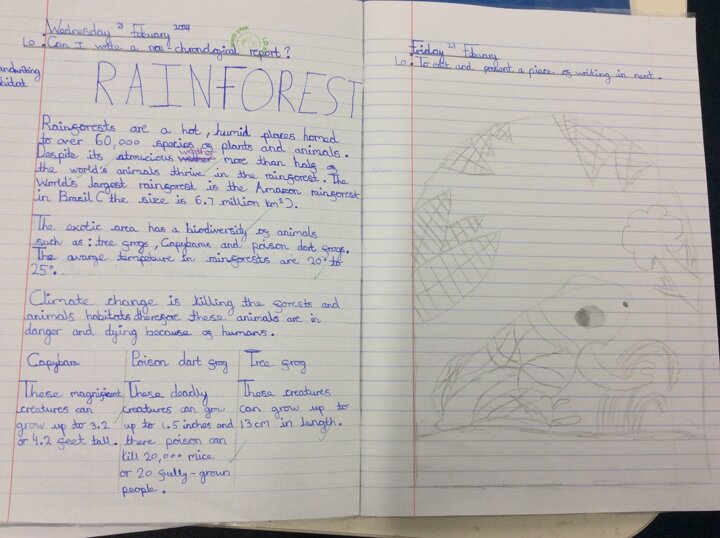 Wednesday 21 February 2024
LO: Can I write a non-chronological report?
RAINFOREST
Rainforests are a hot, humid places homed
to over 60,000 species of plants and animals.
Despite its atrocious weather more than half of
the world's animals thrive in the rainforest. The
World's largest rainforest is the Amazon rainforest
in Brazil (the size is 6.7 million km²).
The exotic area has a biodiversity of animals
such as: tree frogs, Capybaras and poison dart frogs.
The avarge tempeture in rainforests are 20° to
25°.
Climate change is killing the forests and
animals habitats therefore these animals are in
danger and dying because of humans.
Capybara
These magnificent
creatures can
grow up to 3.2
or 4.2 feet tall.
Poison dart frog
These deadly
creatures can grow
up to 1.5 inches and
there poison can
kill 20,000 mice
or 20 fully-grown
people.
Tree frog
These creatures
can grow up to
13cm in length.
Friday 23 February
LO: To edit and present a piece of writing in neat.